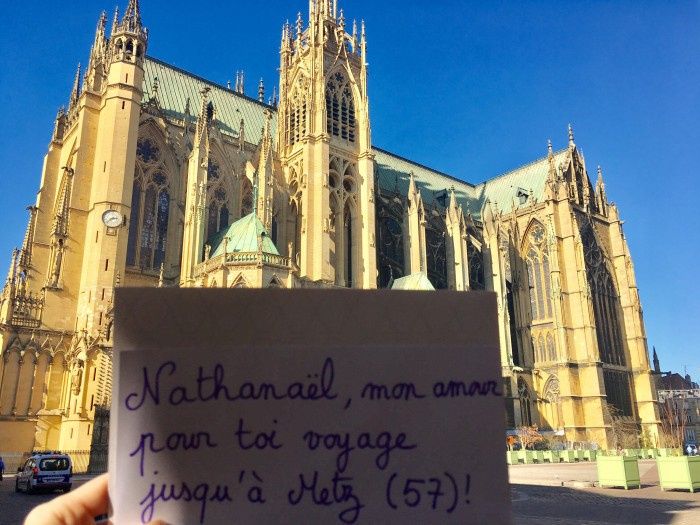 Nathanaël, mon amour
pour toi voyage
jusqu'à Metz (57)!